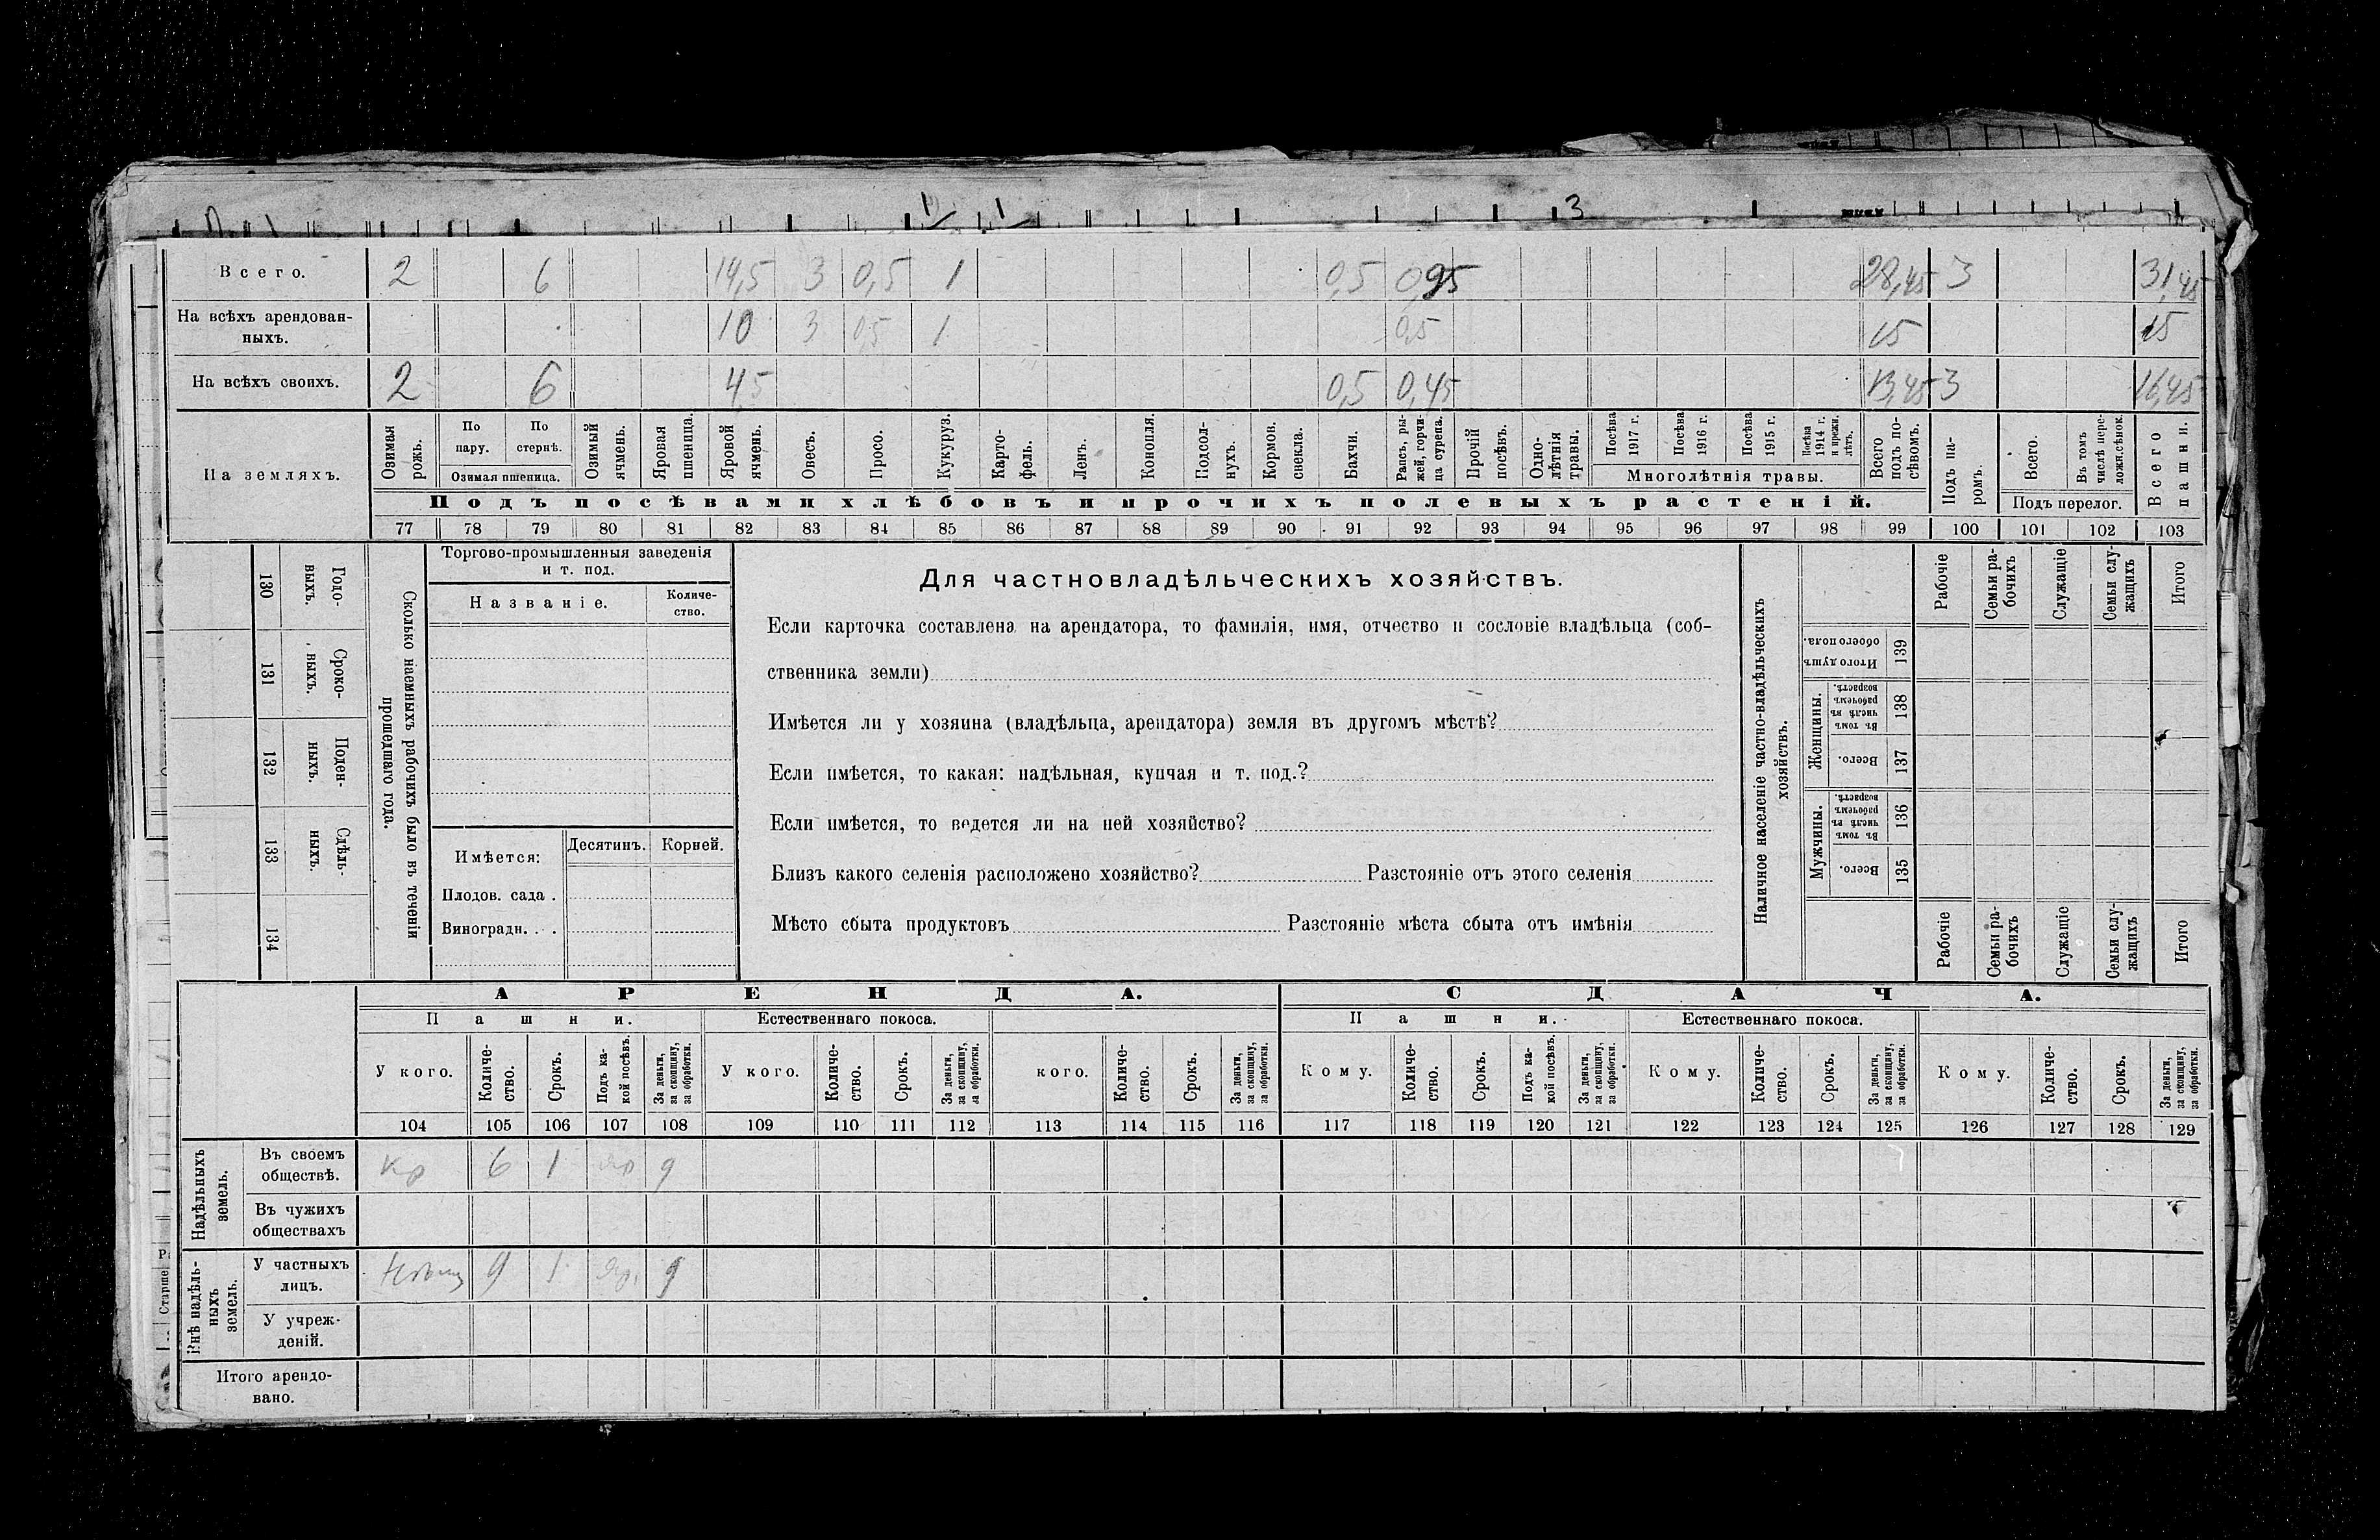 3
Всего. 2 6 14,5 3 0,5 1 0,5 0,95 28,45 3 31,45
На всѣхъ арендован-
ныхъ. 10 3 0,5 1 0,5 15 15
На всѣхъ своихъ. 2 6 4,5 0,5 0,45 13,45 3 16,45
На земляхъ.
Озимая рожь.
По пару.
По стернѣ.
Озимая пшеница.
Озимый ячмень.
Яровая пшеница.
Яровой ячмень.
Овесъ.
Просо.
Кукуруз.
Карто-
фель.
Ленъ.
Конопля.
Подсол-
нухъ.
Кормов. свекла.
Бахчи.
Рапсъ, ры-
жей, горчи-
ца сурепа.
Прочій посѣвъ.
Одно-
лѣтнія травы.
Посѣва 1917 г.
Посѣва 1916 г.
Посѣва 1915 г.
Посѣва 1914 г. и прежн. лѣтъ.
Многолѣтнія травы.
Всего подъ по-
сѣвомъ.
Подъ па-
ромъ.
Всего.
Въ томъ числѣ пере-
ложн.сѣнок.
Подъ перелог.
Всего пашни.
Подъ посѣвами хлѣбовъ и прочихъ полевыхъ растеній.
77 78 79 80 81 82 83 84 85 86 87 88 89 90 91 92 93 94 95 96 97 98 99 100 101 102 103
130 Годо-
выхъ.
131 Сроко-
выхъ.
132 Поден-
ныхъ.
133 Сдѣль-
ныхъ.
134
Сколько наемныхъ рабочихъ было въ теченіи
прошедшаго года.
Торгово-промышленныя заведенія
и т. под.
Названіе.
Количе-
ство.
Имѣется: Десятинъ. Корней.
Плодов. сада .
Виноградн. . .
Для частновладѣльческихъ хозяйствъ.
Если карточка составлена на арендатора, то фамилія, имя, отчество и сословіе владѣльца (соб-
ственника земли)
Имѣется ли у хозяина (владѣльца, арендатора) земля въ другомъ мѣстѣ?
Если имѣется, то какая: надѣльная, купчая и т. под.?
Если имѣется, то ведется ли на ней хозяйство?
Близъ какого селенія расположено хозяйство? Разстояніе отъ этого селенія
Мѣсто сбыта продуктовъ Разстояніе мѣста сбыта отъ имѣнія
Наличное населеніе частно-владѣльческихъ
хозяйствъ.
Рабочіе
Семьи ра-
бочихъ
Служащіе
Семьи слу-
жащихъ
Итого
Итого душъ обоего пола. 139
Женщины.
Въ томъ числѣ въ рабочемъ возрастѣ. 138
Всего. 137
Мужчины.
Въ томъ числѣ въ рабочемъ возрастѣ. 136
Всего. 135
Рабочіе
Семьи ра-
бочихъ
Служащіе
Семьи слу-
жащихъ
Итого
АРЕНДА. СДАЧА.
Пашни. Естественнаго покоса. Пашни. Естественнаго покоса.
У кого.
Количе-
ство.
Срокъ.
Подъ ка-
кой посѣвъ.
За деньги,
за скопщину,
за обработки.
У кого.
Количе-
ство.
Срокъ.
За деньги,
за скопщину,
за обработки.
кого.
Количе-
ство.
Срокъ.
За деньги,
за скопщину,
за обработки.
Кому.
Количе-
ство.
Срокъ.
Подъ ка-
кой посѣвъ.
За деньги,
за скопщину,
за обработки.
Кому.
Количе-
ство.
Срокъ.
За деньги,
за скопщину,
за обработки.
Кому.
Количе-
ство.
Срокъ.
За деньги,
за скопщину,
за обработки.
104 105 106 107 108 109 110 111 112 113 114 115 116 117 118 119 120 121 122 123 124 125 126 127 128 129
Надѣльныхъ
земель.
Въ своемъ
обществѣ. кр 6 1 яр д
Въ чужихъ
обществахъ
Внѣ надѣль-
ныхъ
земель.
У частныхъ
лицъ. 9 1 яр. д
У учреж-
деній.
Итого арендо-
вано.
Старше